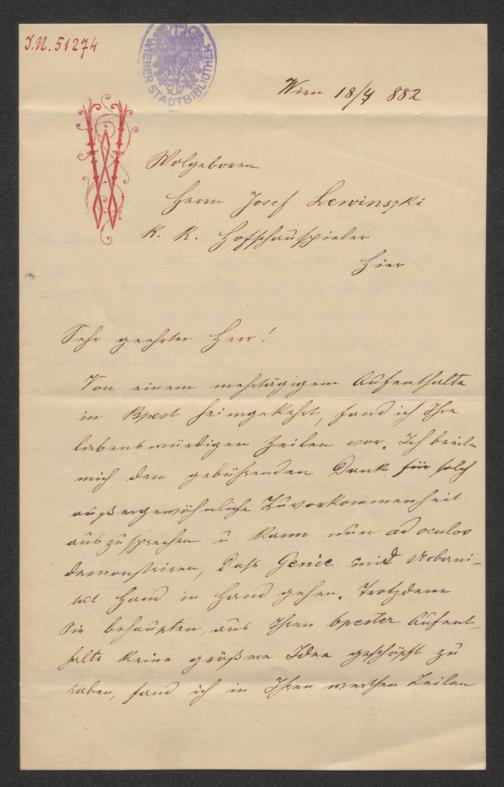 I.N. 51274
WIENER STADTBIBLIOTHEK
Wien 18/4 882
Wolgeboren
Herrn Josef Lewinszki
K. K. Hofschauspieler
Hier
Sehr geehrter Herr!
Von einem mehrtägigem Aufenthalte
in Bpest heimgekehrt, fand ich Ihre
liebenswürdigen Zeilen vor. Ich beeile
mich den gebührenden Dank für solch
außergewöhnliche Zuvorkommenheit
auszusprechen u kann nun ad oculos
demonstriren, daß Genie mit Urbani-
tät Hand in Hand gehen. Trotzdem
Sie behaupten, aus Ihrem bpester Aufent-
halte keine größere Idee geschöpft zu
haben, fand ich in Ihren werthen Zeilen